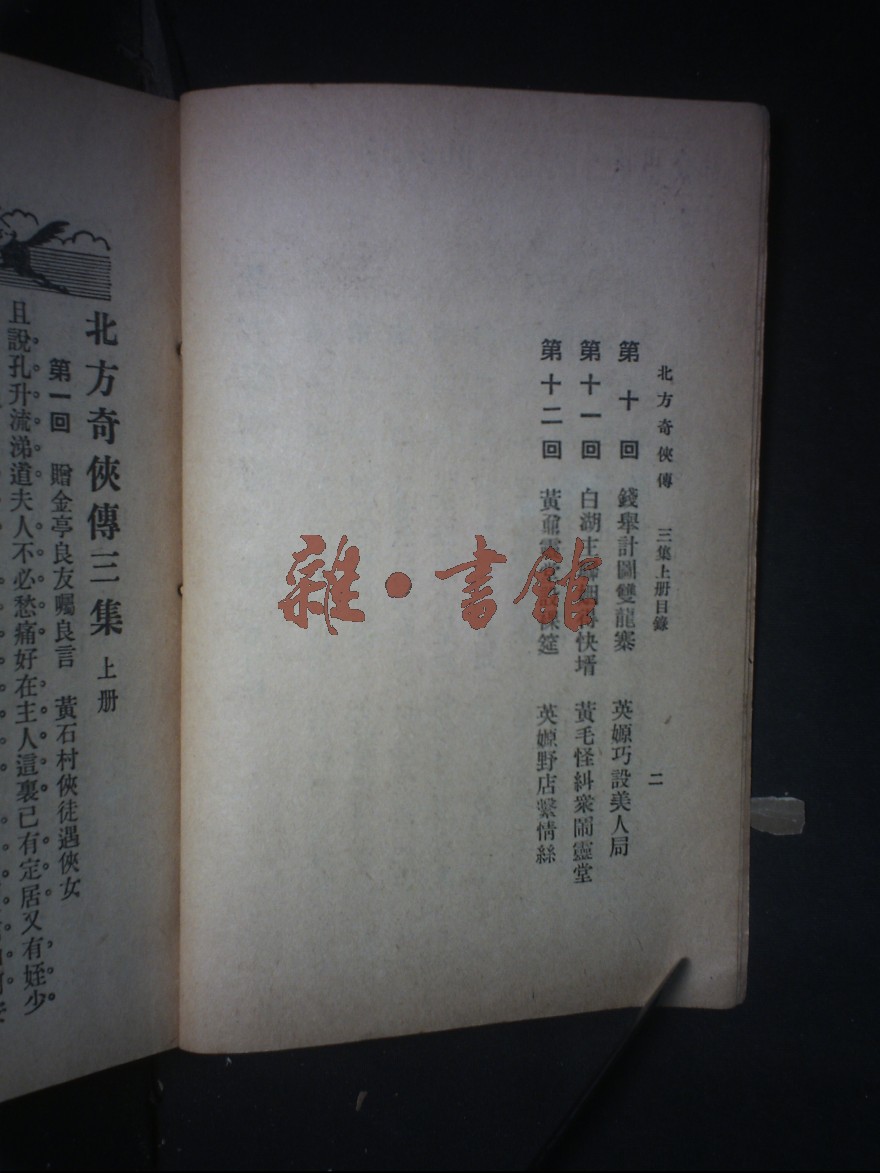 北方奇俠傳 三集上册目錄 二
第十回 錢舉計圖雙龍寨 英嫄巧設美人局
第十一回 白湖庄 快壻 黃毛怪糾衆鬧靈堂
第十二回 黃 筵 英嫄野店繫情絲
雜·書館
北方奇俠傳三集 上册
第一回 贈金亭良友囑良言 黃石村俠徒遇俠女
且說孔升流涕道夫人不必愁痛好在主人這裏已有定居又有姪少